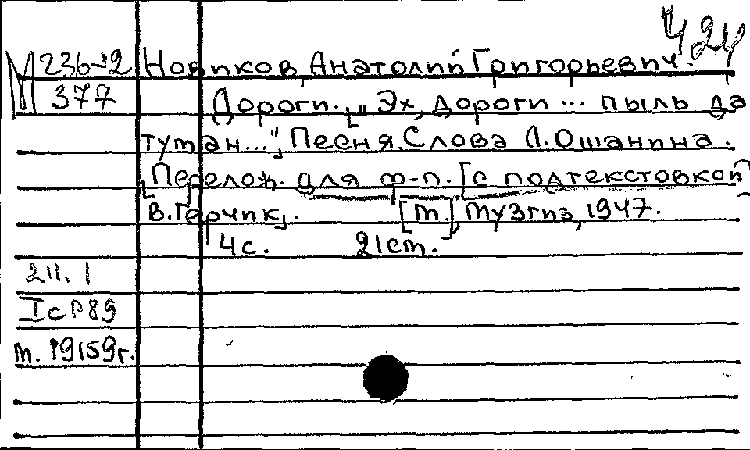 М 236-12 Новиков, Анатолий Григорьевич.
377 Дороги. [„Эх, дороги... пыль да
туман..."] Песня. Слова Л. Ошанина.
[Перелож. для ф-п. [с подтекстовкой]
В. Герчик]. [М.], Музгиз, 1947.
4 с. 21 см.
2Н. 1
т. 19159г.